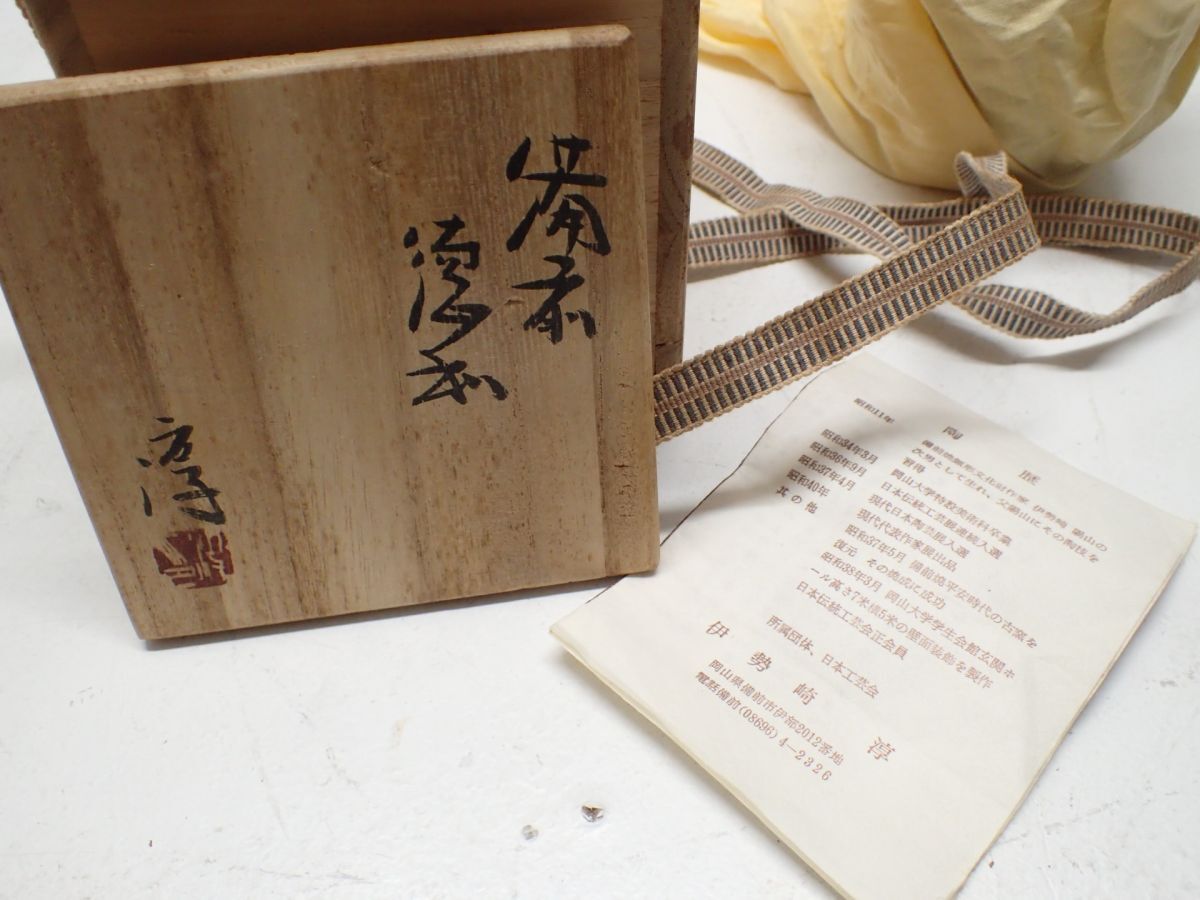 備前
徳利
淳
陶歴
昭和11年 備前焼無形文化財作家 伊勢崎 陽山の
次男として生れ、父陽山にその陶技を
習得
昭和34年3月 岡山大学特設美術科卒業
昭和36年9月 日本伝統工芸展連続入選
昭和37年4月 現代日本陶芸展入選
昭和40年 現代代表作家展出品
其の他 昭和37年5月 備前焼平安時代の古窯を
復元 その焼成に成功
昭和38年3月 岡山大学学生会館玄関ホ
ール高さ7米横5米の壁面装飾を製作
日本伝統工芸会正会員
所属団体、日本工芸会
伊勢崎 淳
岡山県備前市伊部2012番地
電話備前(08696)4-2326